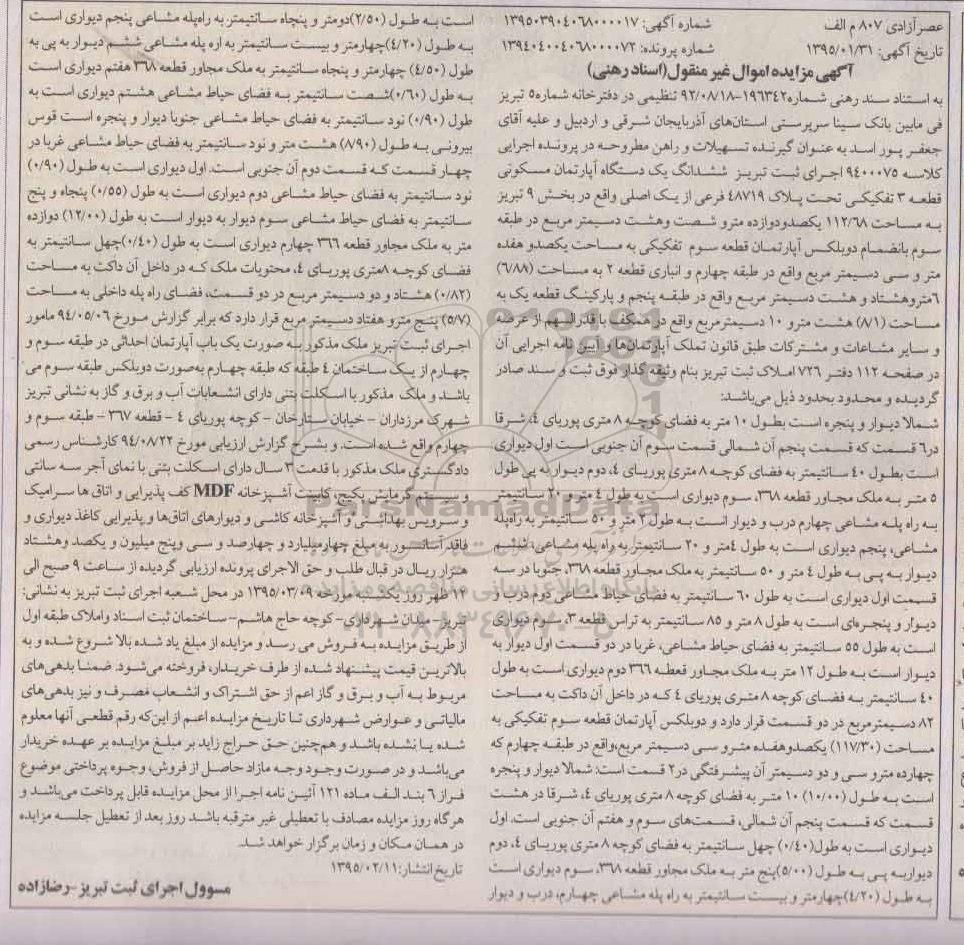 عصر آزادی ۸۰۷ م الف
شماره آگهی: ۱۳۹۵۰۳۹۰۴۰۶۸۰۰۰۰۱۷
تاریخ آگهی: ۱۳۹۵/۰۱/۳۱
شماره پرونده: ۱۳۹۴۰۴۰۰۴۰۶۸۰۰۰۰۷۲
آگهی مزایده اموال غیر منقول(اسناد رهنی)
به استناد سند رهنی شماره۱۹۶۳۴۲-۹۲/۰۸/۱۸ تنظیمی در دفترخانه شماره۵ تبریز
فی مابین بانک سینا سرپرستی استان‌های آذربایجان شرقی و اردبیل و علیه آقای
جعفر پور اسد به عنوان گیرنده تسهیلات و راهن مطروحه در پرونده اجرایی
کلاسه ۹۴۰۰۰۷۵ اجرای ثبت تبریز ششدانگ یک دستگاه آپارتمان مسکونی
قطعه ۳ تفکیکی تحت پلاک ۴۸۷۱۹ فرعی از یک اصلی واقع در بخش ۹ تبریز
به مساحت ۱۱۲/۶۸ یکصدودوازده مترو شصت وهشت دسیمتر مربع در طبقه
سوم بانضمام دوبلکس آپارتمان قطعه سوم تفکیکی به مساحت یکصدو هفده
متر و سی دسیمتر مربع واقع در طبقه چهارم و انباری قطعه ۲ به مساحت (۶/۸۸)
۶متروهشتاد و هشت دسیمتر مربع واقع در طبقه پنجم و پارکینگ قطعه یک به
مساحت (۸/۱) هشت مترو ۱۰ دسیمترمربع واقع در همکف با قدرالسهم از عرصه
و سایر مشاعات و مشترکات طبق قانون تملک آپارتمان‌ها و آیین نامه اجرایی آن
در صفحه ۱۱۲ دفتر ۷۲۶ املاک ثبت تبریز بنام وثیقه گذار فوق ثبت و سند صادر
گردیده و محدود بحدود ذیل می‌باشد:
شمالا دیوار و پنجره است بطول ۱۰ متر به فضای کوچه ۸ متری پوریای ۴، شرقا
در۶ قسمت که قسمت پنجم آن شمالی قسمت سوم آن جنوبی است اول دیواری
است بطول ۴۰ سانتیمتر به فضای کوچه ۸ متری پوریای ۴، دوم دیوار به پی طول
۵ متر به ملک مجاور قطعه ۳۶۸، سوم دیواری است به طول ۴ متر و ۲۰ سانتیمتر
به راه پله مشاعی چهارم درب و دیوار است به طول ۲ متر و ۵۰ سانتیمتر به راه‌پله
مشاعی، پنجم دیواری است به طول ۴متر و ۲۰ سانتیمتر به راه پله مشاعی، ششم
دیوار به پی به طول ۴ متر و ۵۰ سانتیمتر به ملک مجاور قطعه ۳۶۸، جنوبا در سه
قسمت اول دیواری است به طول ۶۰ سانتیمتر به فضای حیاط مشاعی دوم درب و
دیوار و پنجره‌ای است به طول ۸ متر و ۸۵ سانتیمتر به تراس قطعه ۳، سوم دیواری
است به طول ۵۵ سانتیمتر به فضای حیاط مشاعی، غربا در دو قسمت اول دیوار به
دیوار است به طول ۱۲ متر به ملک مجاور قعطه ۳۶۶ دوم دیواری است به طول
۴۰ سانتیمتر به فضای کوچه ۸ متری پوریای ۴ که در داخل آن داکت به مساحت
۸۲ دسیمترمربع در دو قسمت قرار دارد و دوبلکس آپارتمان قطعه سوم تفکیکی به
مساحت (۱۱۷/۳۰) یکصدوهفده مترو سی دسیمتر مربع،واقع در طبقه چهارم که
چهارده مترو سی و دو دسیمتر آن پیشرفتگی در۲ قسمت است: شمالا دیوار و پنجره
است به طول (۱۰/۰۰) ۱۰ متر به فضای کوچه ۸ متری پوریای ۴، شرقا در هشت
قسمت که قسمت پنجم آن شمالی، قسمت‌های سوم و هفتم آن جنوبی است. اول
دیواری است به طول(۰/۴۰) چهل سانتیمتر به فضای کوچه ۸ متری پوریای ۴، دوم
دیواربه پی به طول (۵/۰۰)پنج متر به ملک مجاور قطعه ۳۶۸، سوم دیواری است
به طول (۴/۲۰)چهارمتر و بیست سانتیمتر به راه پله مشاعی چهارم، درب و دیوار
است به طول (۲/۵۰)دومتر و پنجاه سانتیمتر به راه‌پله مشاعی پنجم دیواری است
به طول (۴/۲۰)چهارمتر و بیست سانتیمتر به اره پله مشاعی ششم دیوار به پی به
طول (۴/۵۰) چهارمتر و پنجاه سانتیمتر به ملک مجاور قطعه ۳۶۸ هفتم دیواری است
به طول (۰/۶۰)شصت سانتیمتر به فضای حیاط مشاعی هشتم دیواری است به
طول (۰/۹۰) نود سانتیمتر به فضای حیاط مشاعی جنوبا دیوار و پنجره است قوس
بیرونی به طول (۸/۹۰) هشت متر و نود سانتیمتر به فضای حیاط مشاعی غربا در
چهار قسمت که قسمت دوم آن جنوبی است. اول دیواری است به طول (۰/۹۰)
نود سانتیمتر به فضای حیاط مشاعی دوم دیواری است به طول (۰/۵۵) پنجاه و پنج
سانتیمتر به فضای حیاط مشاعی سوم دیوار به دیوار است به طول (۱۲/۰۰) دوازده
متر به ملک مجاور قطعه ۳۶۶ چهارم دیواری است به طول (۰/۴۰)چهل سانتیمتر به
فضای کوچه ۸متری پوریای ۴، محتویات ملک که در داخل آن داکت به مساحت
(۰/۸۲) هشتاد و دو دسیمتر مربع در دو قسمت، فضای راه پله داخلی به مساحت
(۵/۷) پنج مترو هفتاد دسیمتر مربع قرار دارد که برابر گزارش مورخ ۹۴/۰۵/۰۶ مامور
اجرای ثبت تبریز ملک مذکور به صورت یک باب آپارتمان احداثی در طبقه سوم و
چهارم از یک ساختمان ۴ طبقه که طبقه چهارم به‌صورت دوبلکس طبقه سوم می
باشد و ملک مذکور با اسکلت بتنی دارای انشعابات آب و برق و گاز به نشانی تبریز
شهرک مرزداران – خیابان ستارخان – کوچه پوریای ۴ – قطعه ۳۶۷- طبقه سوم و
چهارم واقع شده است. و بشرح گزارش ارزیابی مورخ ۹۴/۰۸/۲۲ کارشناس رسمی
دادگستری ملک مذکور با قدمت ۳ سال دارای اسکلت بتنی با نمای آجر سه سانتی
و سیستم گرمایش پکیج، کابینت آشپزخانه MDF کف پذیرایی و اتاق ها سرامیک
و سرویس بهداشتی و آشپزخانه کاشی و دیوارهای اتاق‌ها و پذیرایی کاغذ دیواری و
فاقد آسانسور به مبلغ چهارمیلیارد و چهارصد و سی وپنج میلیون و یکصد وهشتاد
هزار ریال در قبال طلب و حق الاجرای پرونده ارزیابی گردیده از ساعت ۹ صبح الی
۱۲ ظهر روز یکشنبه مورخه ۱۳۹۵/۰۳/۰۹ در محل شعبه اجرای ثبت تبریز به نشانی:
تبریز– میدان شهرداری– کوچه حاج هاشم– ساختمان ثبت اسناد واملاک طبقه اول
از طریق مزایده به فروش می رسد و مزایده از مبلغ یاد شده بالا شروع شده و به
بالاترین قیمت پیشنهاد شده از طرف خریدار، فروخته می‌شود. ضمنا بدهی‌های
مربوط به آب و برق و گاز اعم از حق اشتراک و انشعاب مصرف و نیز بدهی‌های
مالیاتی و عوارض شهرداری تا تاریخ مزایده اعم از این‌که رقم قطعی آنها معلوم
شده یا نشده باشد و هم‌چنین حق حراج زاید بر مبلغ مزایده بر عهده خریدار
می‌باشد و در صورت وجود وجه مازاد حاصل از فروش، وجوه پرداختی موضوع
فراز ۶ بند الف ماده ۱۲۱ آئین نامه اجرا از محل مزایده قابل پرداخت می‌باشد و
هرگاه روز مزایده مصادف با تعطیلی غیر مترقبه باشد روز بعد از تعطیل جلسه مزایده
در همان مکان و زمان برگزار خواهد شد.
تاریخ انتشار: ۱۳۹۵/۰۲/۱۱
مسوول اجرای ثبت تبریز-رضازاده
ParsNamadData